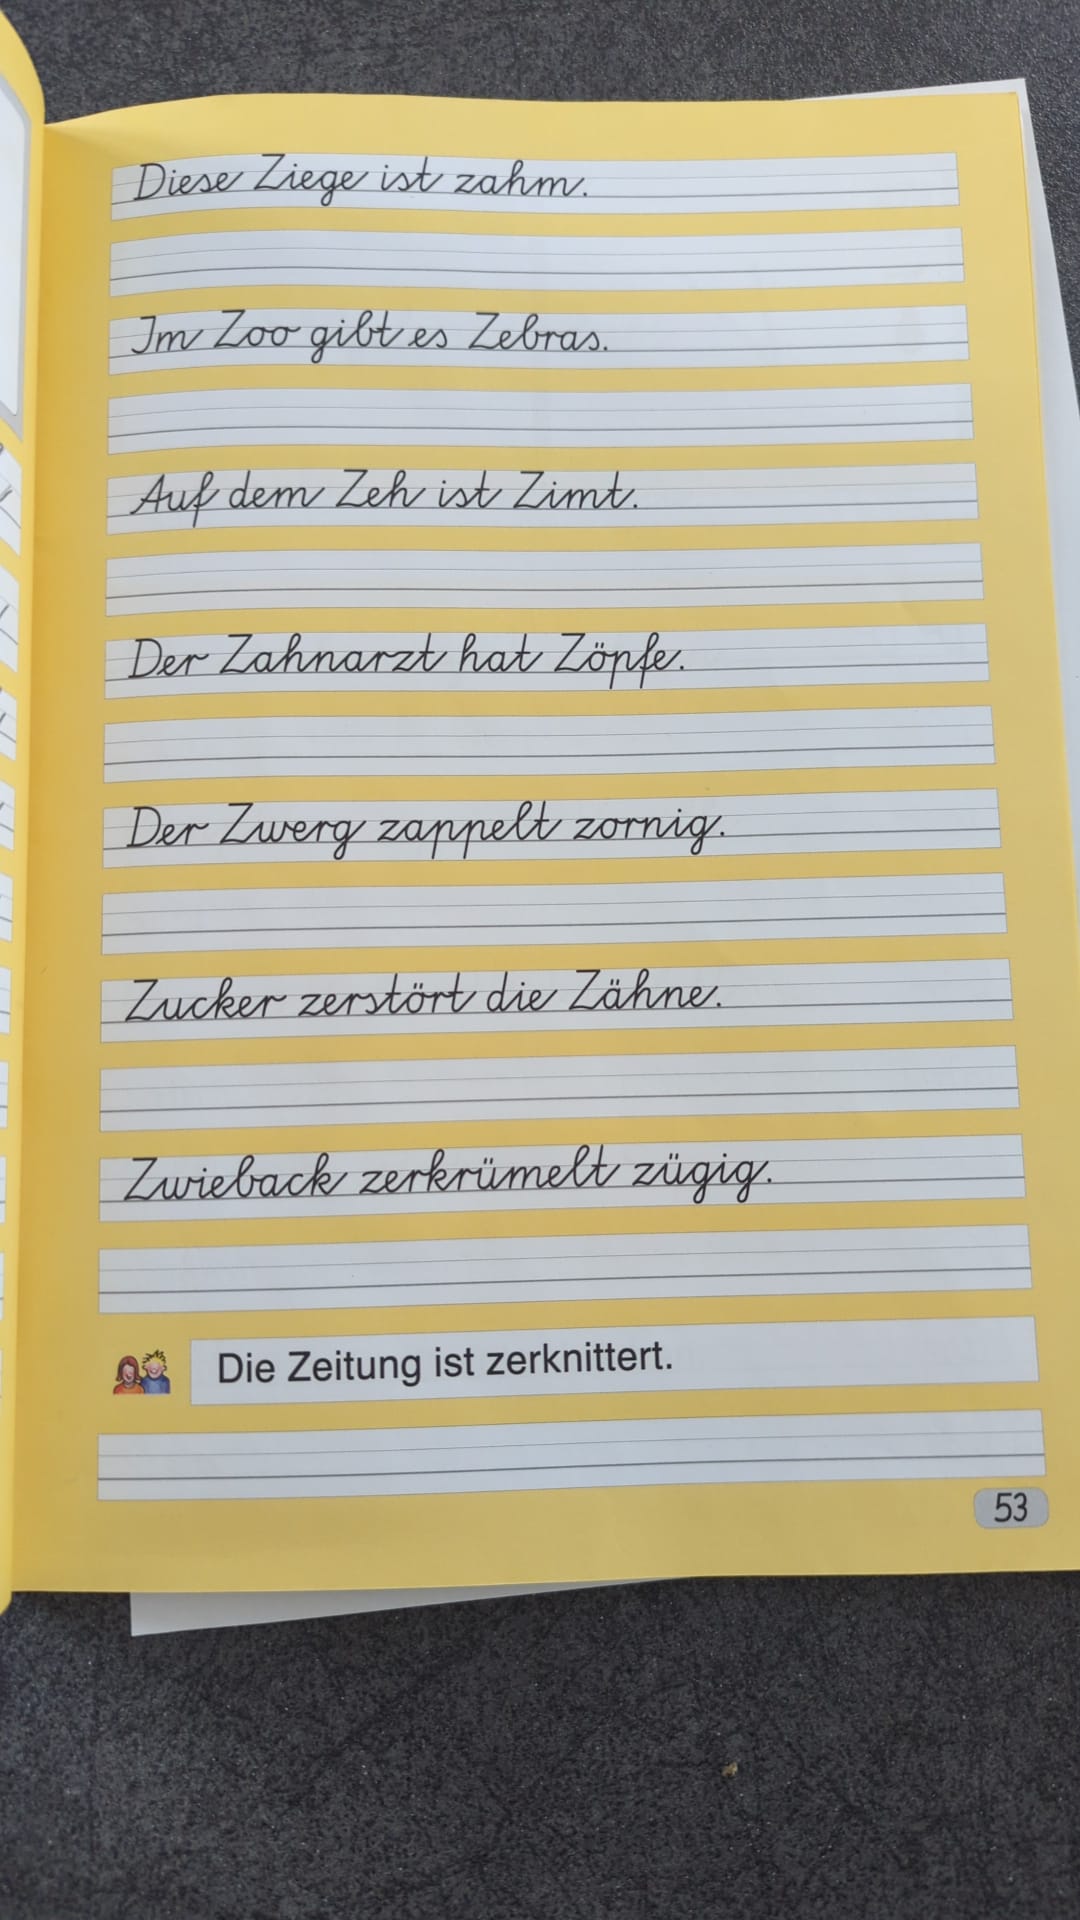 Diese Ziege ist zahm.
Im Zoo gibt es Zebras.
Auf dem Zeh ist Zimt.
Der Zahnarzt hat Zöpfe.
Der Zwerg zappelt zornig.
Zucker zerstört die Zähne.
Zwieback zerkrümelt zügig.
Die Zeitung ist zerknittert.
53